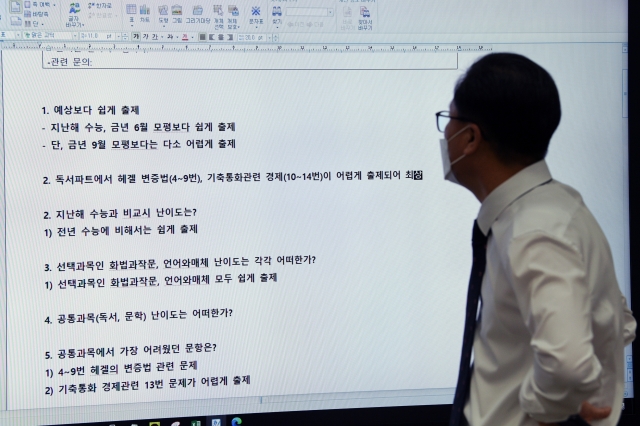 -관련 문의:
1. 예상보다 쉽게 출제
- 지난해 수능, 금년 6월 모평보다 쉽게 출제
- 단, 금년 9월 모평보다는 다소 어렵게 출제
2. 독서파트에서 헤겔 변증법(4~9번), 기축통화관련 경제(10~14번)이 어렵게 출제되어 최상
2. 지난해 수능과 비교시 난이도는?
1) 전년 수능에 비해서는 쉽게 출제
3. 선택과목인 화법과작문, 언어와매체 난이도는 각각 어떠한가?
1) 선택과목인 화법과작문, 언어와매체 모두 쉽게 출제
4. 공통과목(독서, 문학) 난이도는 어떠한가?
5. 공통과목에서 가장 어려웠던 문항은?
1) 4~9번 헤겔의 변증법 관련 문제
2) 기축통화 경제관련 13번 문제가 어렵게 출제